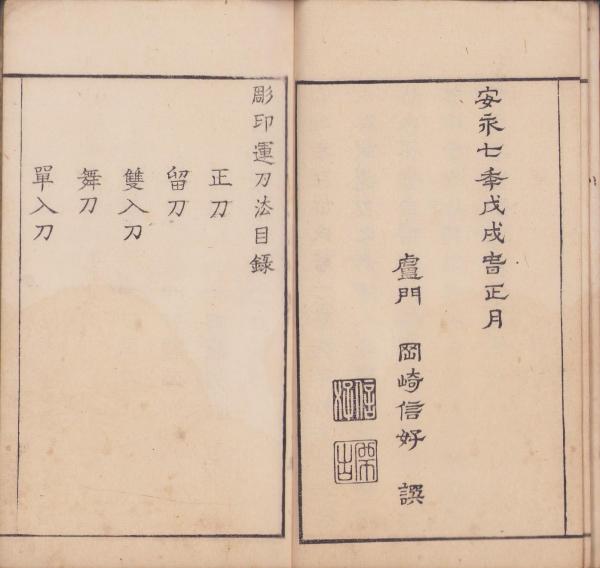 安永七年戊戌春正月
盧門 岡崎信好 譔
信好
彫印運刀法目録
正刀
留刀
雙入刀
舞刀
單入刀